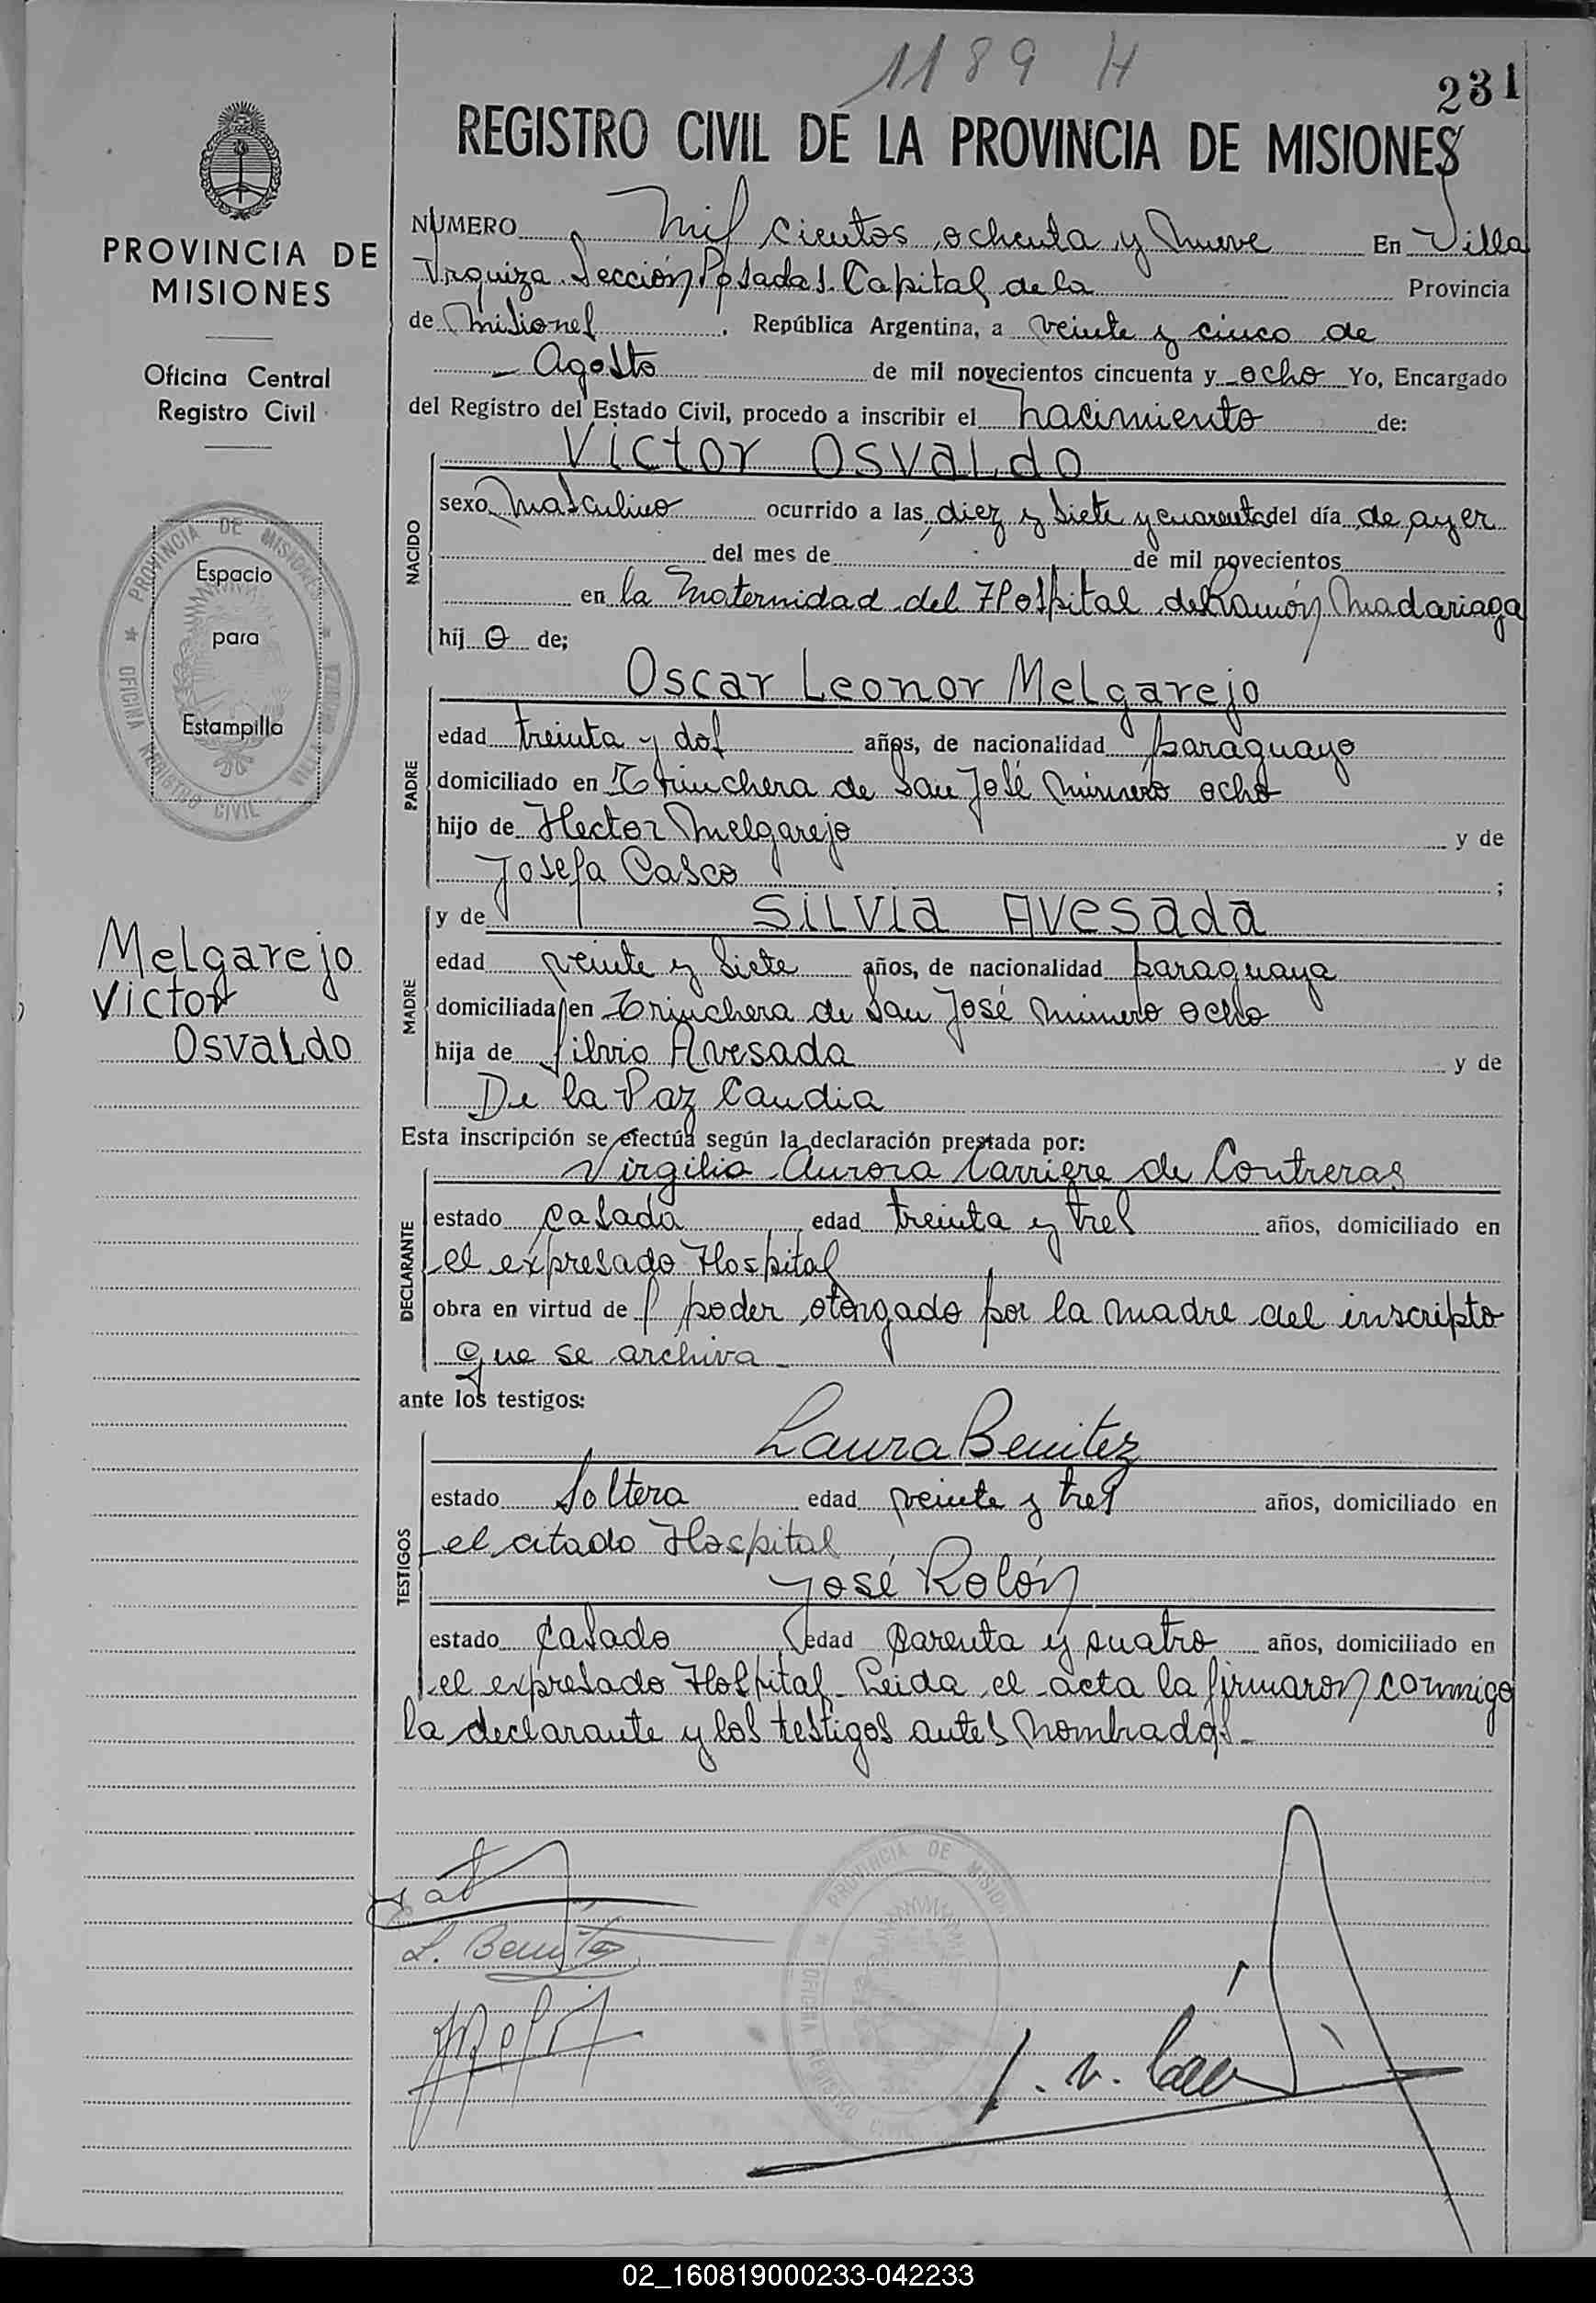 1189 H
231
REGISTRO CIVIL DE LA PROVINCIA DE MISIONES
PROVINCIA DE
MISIONES
Oficina Central
Registro Civil
PROVINCIA DE MISIONES
OFICINA REGISTRO CIVIL
Espacio
para
Estampilla
Melgarejo
Victor
Osvaldo
NUMERO Mil cientos ochenta y nueve En Villa
Urquiza Sección Posadas Capital de la Provincia
de Misiones, República Argentina, a veinte y cinco de
Agosto de mil novecientos cincuenta y ocho Yo, Encargado
del Registro del Estado Civil, procedo a inscribir el nacimiento de:
NACIDO
Victor Osvaldo
sexo masculino ocurrido a las diez y siete y cuarenta del día de ayer
del mes de de mil novecientos
en la Maternidad del Hospital de Ramón Madariaga
hij o de;
PADRE
Oscar Leonor Melgarejo
edad treinta y dos años, de nacionalidad paraguayo
domiciliado en Trinchera de San José número ocho
hijo de Hector Melgarejo y de
Josefa Casco ;
MADRE
y de Silvia Avesada
edad veinte y siete años, de nacionalidad paraguaya
domiciliada en Trinchera de San José número ocho
hija de Silvio Avesada y de
De la Paz Candia
Esta inscripción se efectúa según la declaración prestada por:
DECLARANTE
Virgilia Aurora Carriere de Contreras
estado casada edad treinta y tres años, domiciliado en
el expresado Hospital
obra en virtud de poder otorgado por la madre del inscripto
que se archiva
ante los testigos:
TESTIGOS
Laura Benitez
estado Soltera edad veinte y tres años, domiciliado en
el citado Hospital
José Rolón
estado Casado edad carenta y cuatro años, domiciliado en
el expresado Hospital Leida el acta la firmaron conmigo
la declarante y los testigos antes nombrados.-
L. Benitez
PROVINCIA DE MISIONES
OFICINA REGISTRO CIVIL
02_160819000233-042233